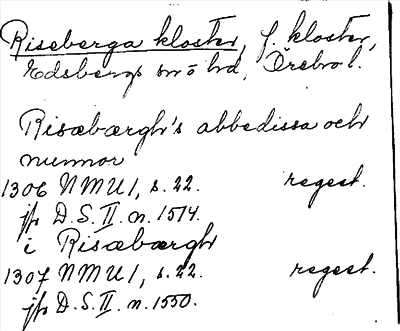 Riseberga kloster, f. kloster,
Edsbergs sn o hd, Örebro l.
Risæbærgh's abbedissa och
nunnor
1306 NMU 1, s. 22. regest.
jfr D.S. II. n. 1514.
i Risæbærgh
1307 NMU 1, s. 22. regest.
jfr D.S. II. n. 1550.